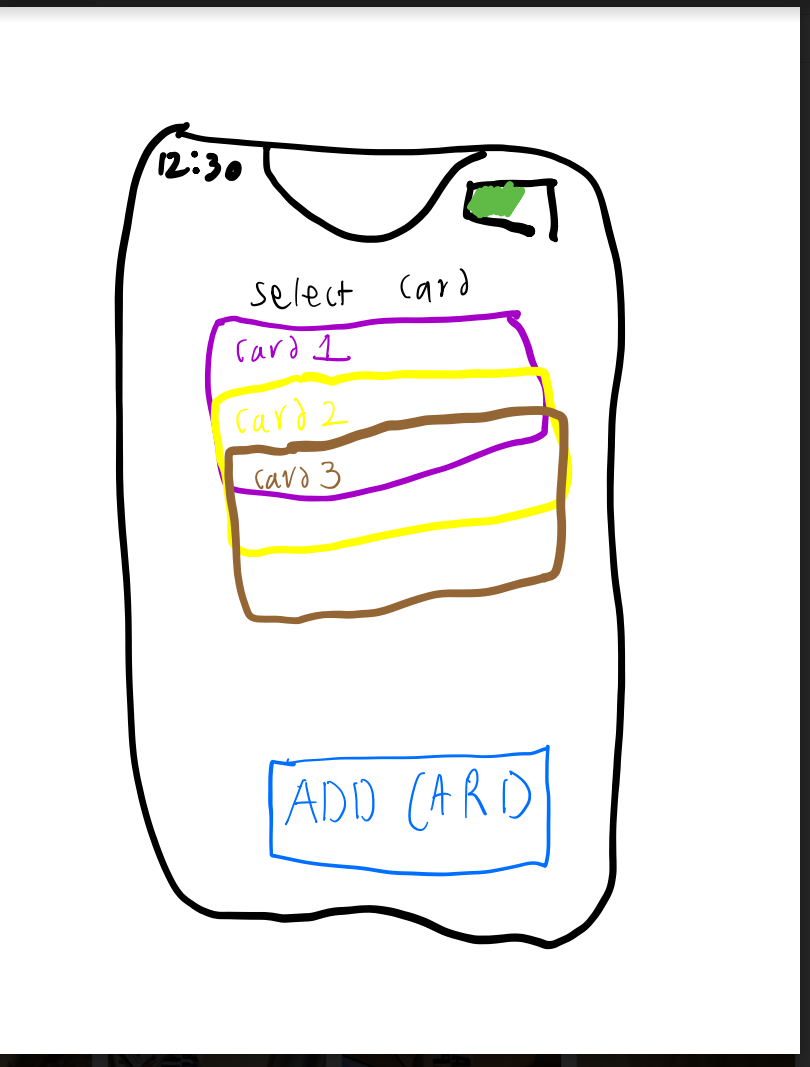 12:30
select card
card 1
card 2
card 3
ADD CARD